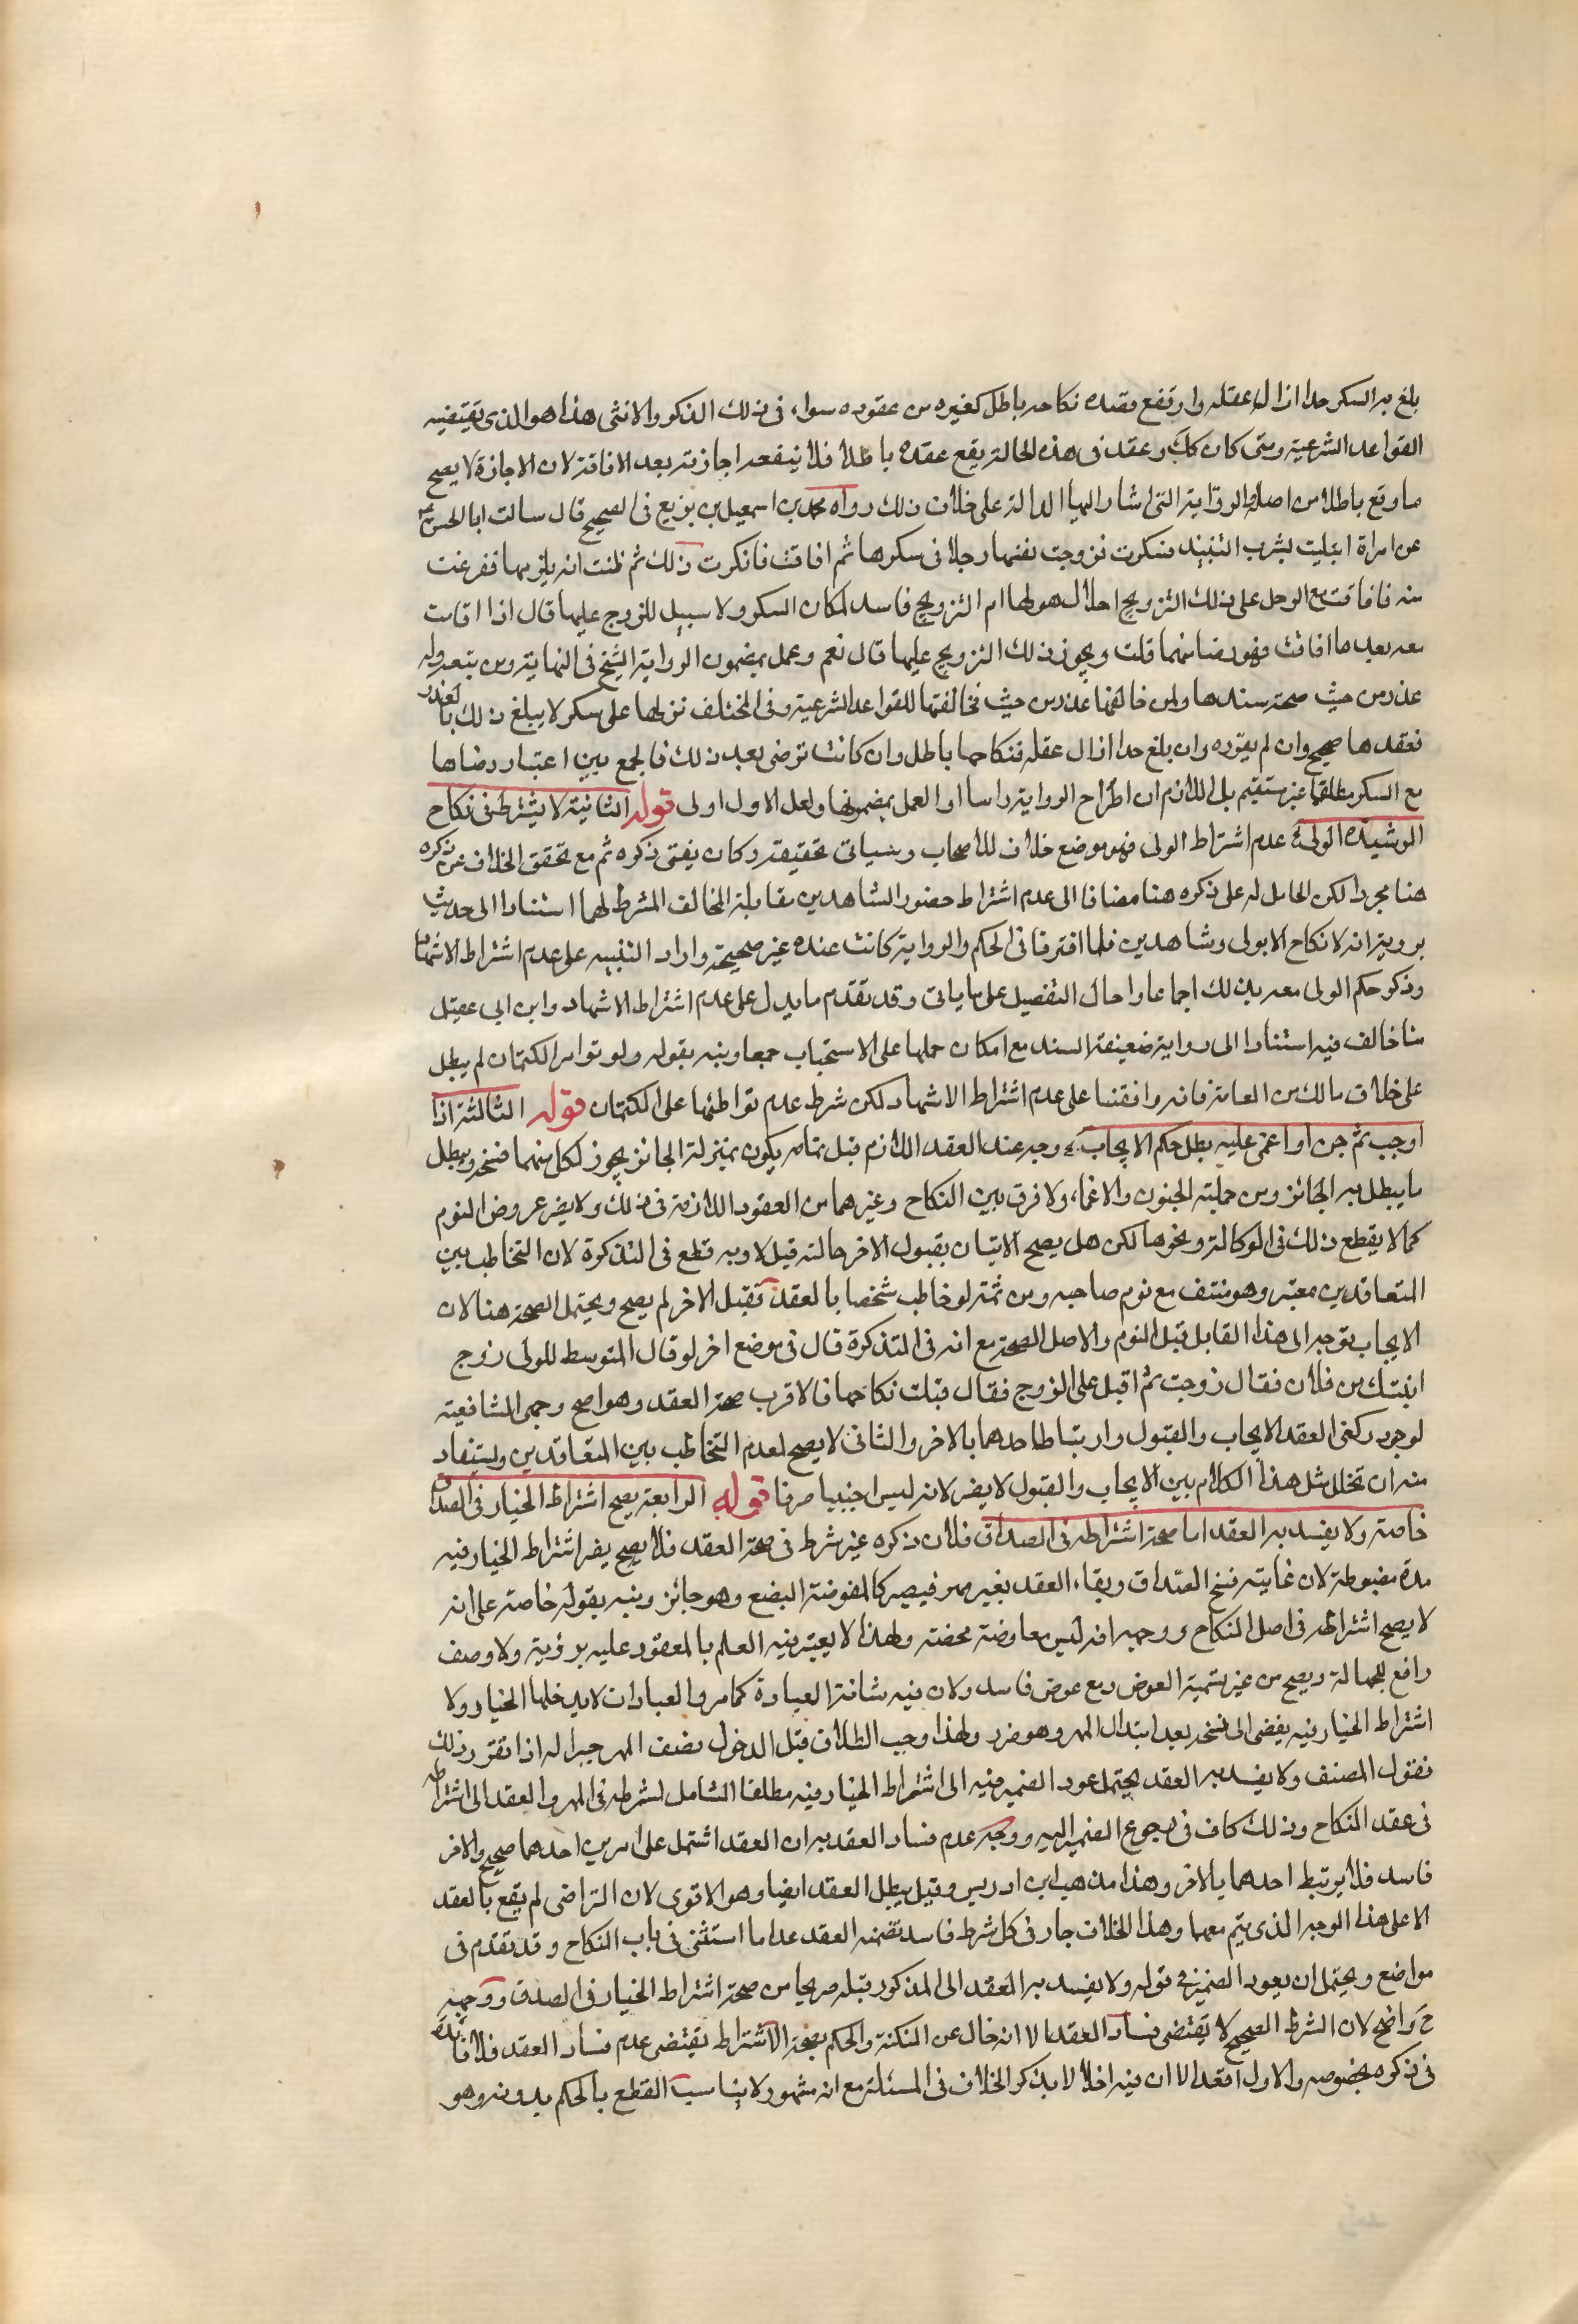 بلغ به السكر حدا ازال عقله وارتفع قصده نكاحه باطل كغيره من عقوده سواء فى ذلك الذكر والانثى هذا هو الذى يقتضيه
القواعد الشرعية ومتى كان كك وعقد فى هذه الحالة يقع عقده باطلا فلا ينفعه اجازته بعد الافاقة لان الاجازة لا يصح
ما وقع باطلا من اصله والرواية التى اشار اليها الدالة على خلاف ذلك رواه محمد بن اسمعيل بن بزيع فى الصحيح قال سالت ابا الحسن ع
عن امراة ابتليت بشرب النبيذ فسكرت فزوجت نفسها رجلا فى سكرها ثم افاقت فانكرت ذلك ثم ظنت انه يلزمها ففزعت
منه فاقامت مع الرجل على ذلك التزويج احلال هو لها ام التزويج فاسد لمكان السكر ولا سبيل للزوج عليها قال اذا اقامت
معه بعد ما افاقت فهو رضا منها قلت ويجوز ذلك التزويج عليها قال نعم وعمل بمضمون الرواية الشيخ فى النهاية ومن تبعه وله
عذر من حيث صحة سندها ولمن خالفها عذر من حيث مخالفتها للقواعد الشرعية وفى المختلف نزلها على سكر لا يبلغ ذلك بالقدر
فعقدها صحيح وان لم يقرره وان بلغ حدا ازال عقله فنكاحها باطل وان كانت ترضى بعد ذلك فالجمع بين اعتبار رضاها
مع السكر مطلقا غير مستقيم بل اللازم ان اطراح الرواية راسا او العمل بمضمونها ولعل الاول اولى قوله الثانية لا يشترط فى نكاح
الرشيدة الولى عدم اشتراط الولى فهو موضع خلاف للاصحاب وسياتى تحقيقه وكان يغنى ذكره ثم مع تحقق الخلاف عن ذكره
هنا مجردا لكن الحامل له على ذكره هنا مضافا الى عدم اشتراط حضور الشاهدين مقابلة المخالف المشرط لهما استنادا الى حديث
برويه انه لا نكاح الا بولى وشاهدين فلما افترقا فى الحكم والرواية كانت عنده غير صحيحة واراد التنبيه على عدم اشتراط الاشهاد
وذكر حكم الولى معه بذلك اجماعا واحال التفصيل على ما ياتى وقد تقدم ما يدل على عدم اشتراط الاشهاد وابن ابى عقيل
منا خالف فيه استنادا الى رواية ضعيفة السند مع امكان حملها على الاستحباب جمعا ونبه بقوله ولو توامرا لكتمان لم يبطل
على خلاف مالك من العامة فانه وافقنا على عدم اشتراط الاشهاد لكن شرط عدم تواطئهما على الكتمان قوله الثالثة اذا
اوجب ثم جن او اغمى عليه بطل حكم الايجاب وجه عند العقد اللازم قبل تمامه يكون بمنزلة الجائز يجوز لكل منهما فسخه ويبطل
ما يبطل به الجائز ومن جملته الجنون والاغماء ولا فرق بين النكاح وغيرهما من العقود اللازمة فى ذلك ولا يضر عروض النوم
كما لا يقطع ذلك فى الوكالة ونحوها لكن هل يصح الاتيان بقبول الاخر حالته قيل لا وبه قطع فى التذكرة لان التخاطب بين
المتعاقدين معتبر وهو منتف مع نوم صاحبه ومن ثمة لو خاطب شخصا بالعقد تقبل الاخر لم يصح ويحتمل الصحة هنا لان
الايجاب توجه الى هذا القابل قبل النوم والاصل الصحة مع انه فى التذكرة قال فى موضع اخر لو قال المتوسط للولى زوج
ابنتك من فلان فقال زوجت ثم اقبل على الزوج فقال قبلت نكاحها فالاقرب صحة العقد وهو اصح وجهى الشافعية
لوجود ركنى العقد الايجاب والقبول وارتباط احدهما بالاخر والثانى لا يصح لعدم التخاطب بين المتعاقدين ويستفاد
منه ان تخلل مثل هذا الكلام بين الايجاب والقبول لا يضر لانه ليس اجنبيا صرفا قوله الرابعة يصح اشتراط الخيار فى الصداق
خاصة ولا يفسد به العقد اما صحة اشتراطه فى الصداق فلان ذكره غير شرط فى صحة العقد فلا يصح يضر اشتراط الخيار فيه
مدة مضبوطة لان غايته فسخ الصداق وبقاء العقد بغير مهر فيصير كالمفوضة البضع وهو جائز ونبه بقوله خاصة على انه
لا يصح اشتراطه فى اصل النكاح ووجهه انه ليس معاوضة محضة ولهذا لا يعتبر فيه العلم بالمعقود عليه برؤية ولا وصف
رافع للجهالة ويصح من غير تسمية العوض ومع عوض فاسد ولان فيه شائبة العبادة كما مر والعبادات لا يدخلها الخيار ولا
اشتراط الخيار فيه يفضى الى فسخه بعد ابتذال المهر وهو ضرر ولهذا وجب الطلاق قبل الدخول نصف المهر جبرا له اذا تقرر ذلك
فقول المصنف ولا يفسد به العقد يحتمل عود الضمير فيه الى اشتراط الخيار فيه مطلقا الشامل لشرطه فى المهر والعقد الى اشتراطه
فى عقد النكاح وذلك كاف فى رجوع الضمير اليه ووجه عدم فساد العقد به ان العقد اشتمل على امرين احدهما صحيح والاخر
فاسد فلا يرتبط احدهما بالاخر وهذا مذهب ابن ادريس وقيل يبطل العقد ايضا وهو الاقوى لان التراضى لم يقع بالعقد
الا على هذا الوجه الذى يتم معهما وهذا الخلاف جار فى كل شرط فاسد تضمنه العقد عدا ما استثنى فى باب النكاح وقد تقدم فى
مواضع ويحتمل ان يعود الضمير فى قوله ولا يفسد به العقد الى المذكور قبله صريحا من صحة اشتراط الخيار فى الصدق ووجهه
ح واضح لان الشرط الصحيح لا يقتضى فساد العقد الا انه خال عن النكتة والحكم بصحة الاشتراط يقتضى عدم فساد العقد فلا فائدة
فى ذكره بخصوصه والاول اقعد الا ان فيه اخلالا بذكر الخلاف فى المسئلة مع انه مشهور لا يناسب القطع بالحكم بدونه وهو